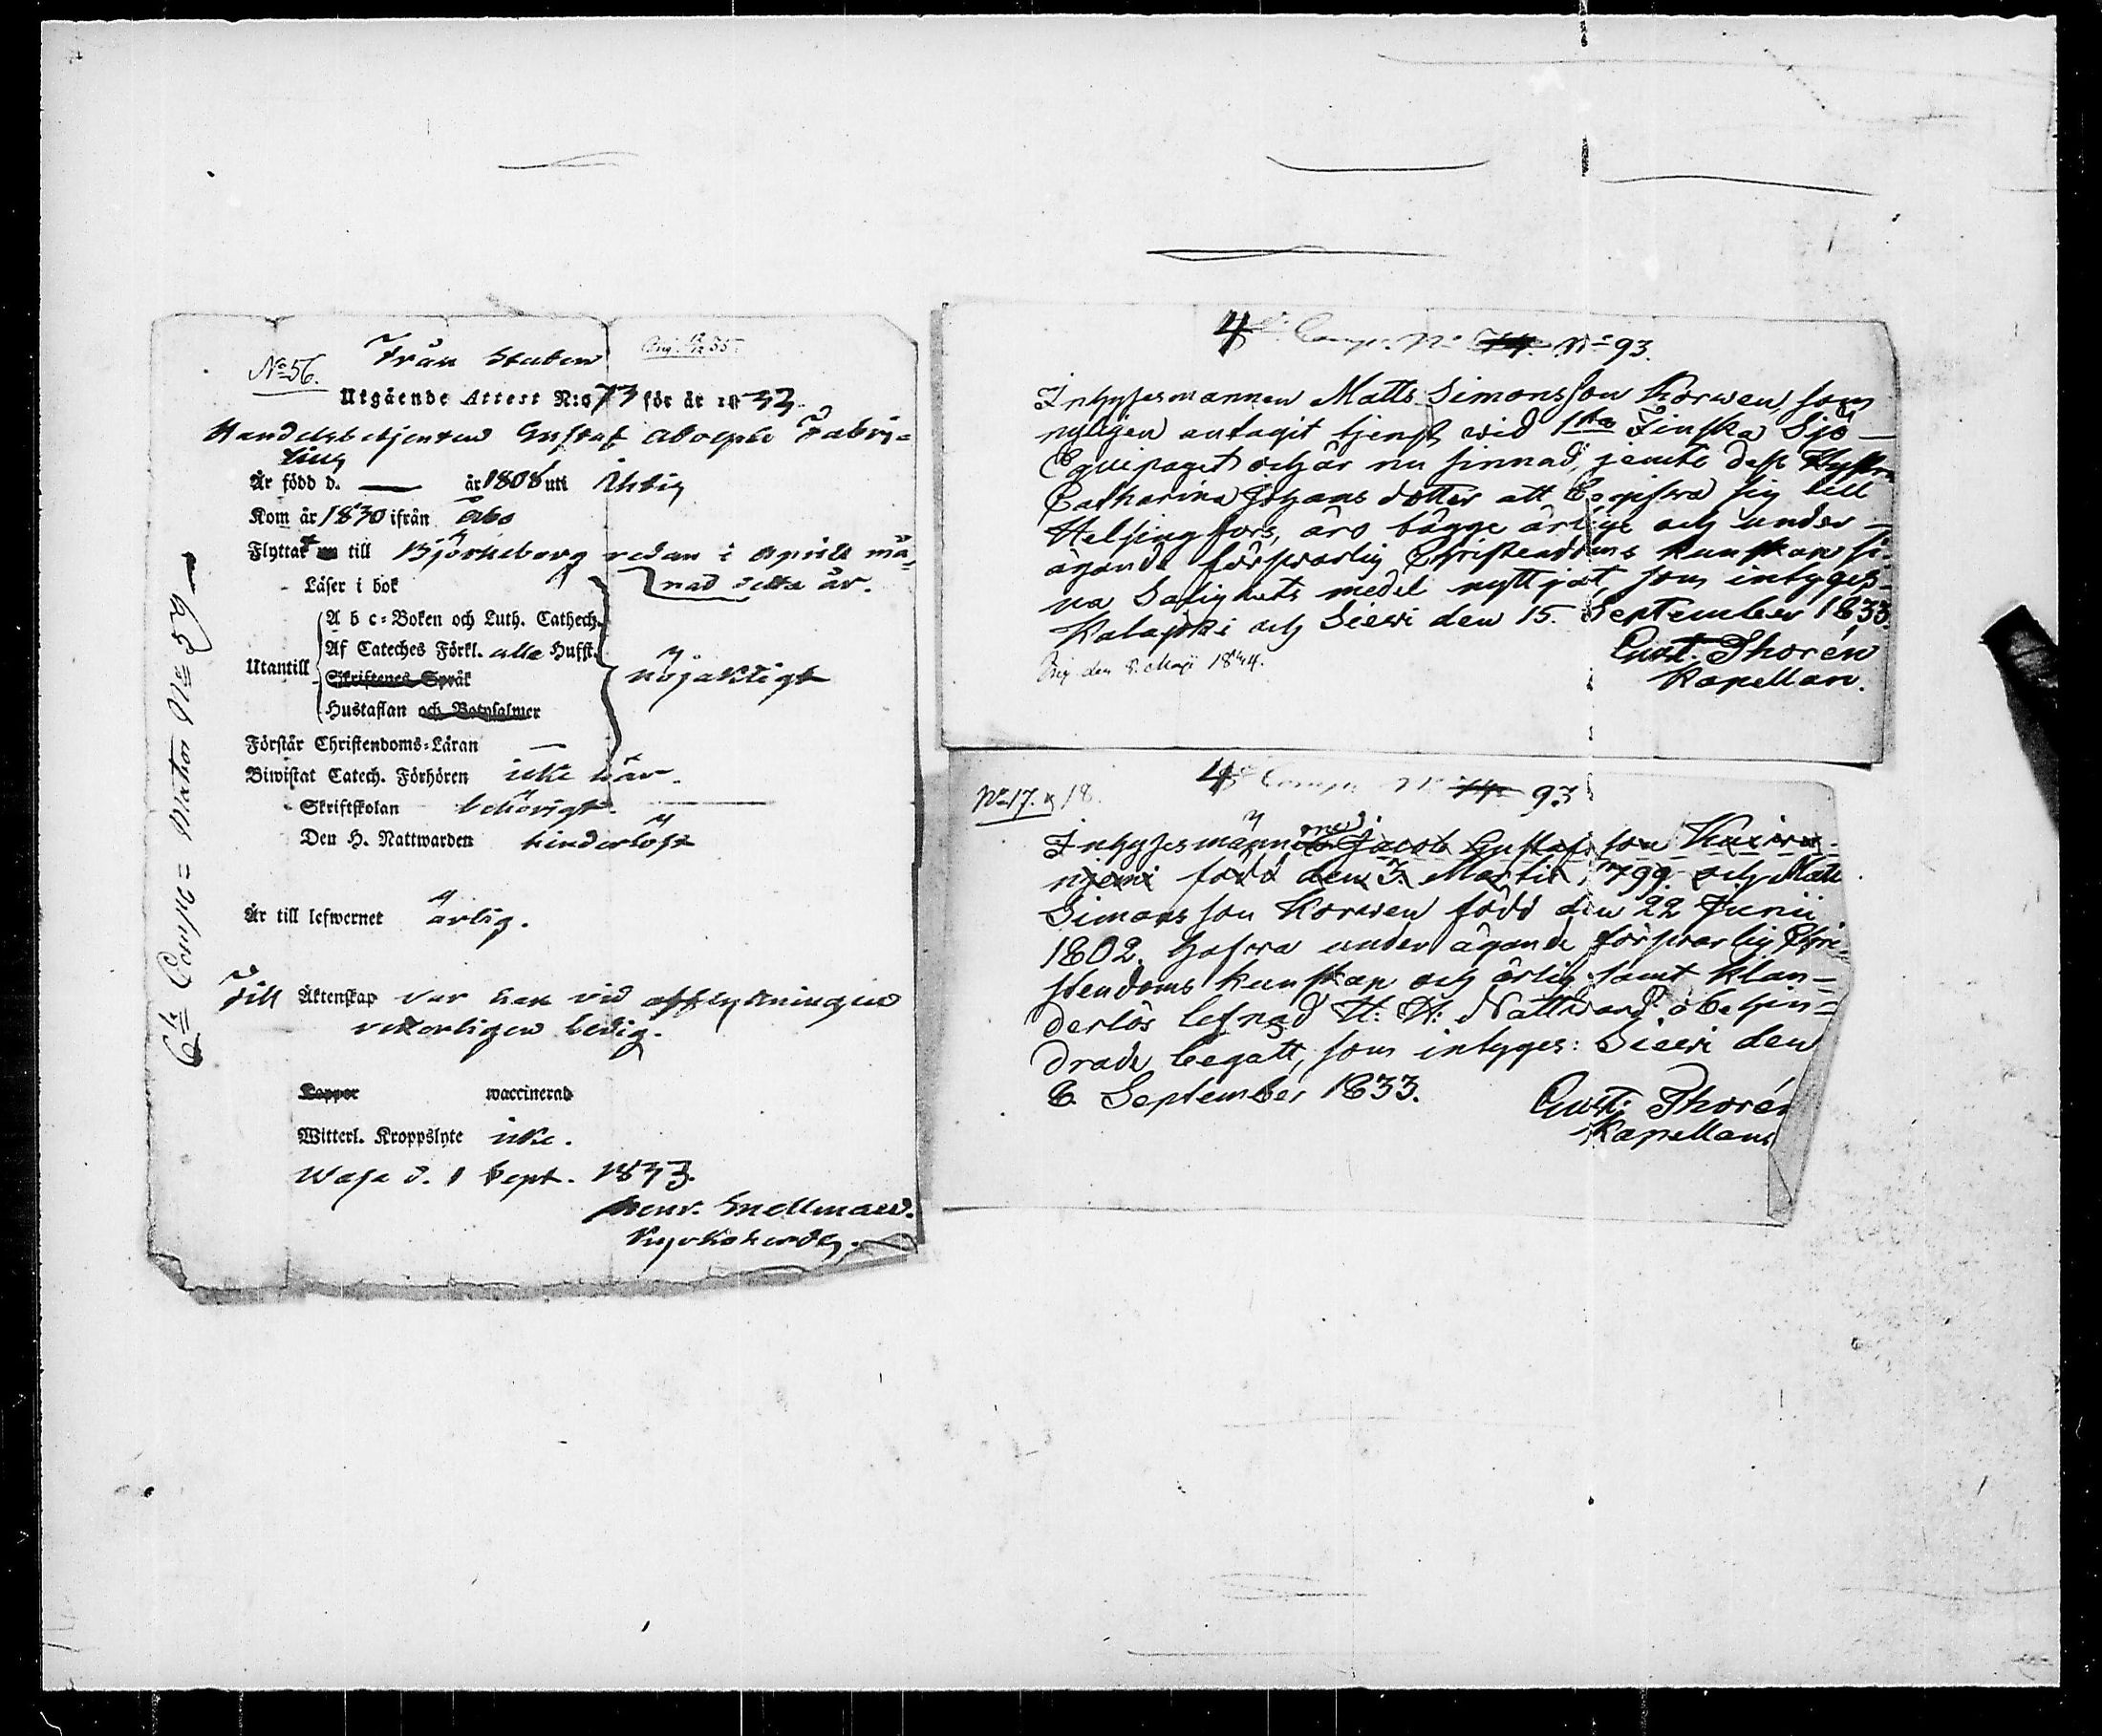 Från Staden
No 56.
Utgående Attest N:o 73 för år 1833
Handelsbetjenten Gustaf Adolph Fabri-
tius
Är född d. — år 1808 uti
Kom år 1830 ifrån Åbo
Flyttat till Björneborg redan i April må-
nad detta år.
Läser i bok
A b c-Boken och Luth. Cathech.
Af Cateches Förkl. alla Hufst.
Utantill
Skriftenes Språk
nöjaktigt
Hustaflan och Botpsalmer
Förstår Christendoms-Läran —
Biwistat Catech. Förhören icke här.
Skriftskolan behörigt.
Den H. Nattwarden hinderlöst
Är till lefwernet ärlig.
Till Äktenskap var han vid afflyttningen
veterligen ledig.
Koppor waccinerad
Witterl. Kroppslyte icke.
Wasa d. 1 Sept. 1833.
Henr. Snellman.
Kyrkoherde.
6te Comp: Matros No 59
4de Comp. No 74 No 93.
Inhysesmannen Matts Simonsson Korwen, som
nyligen antagit tjenst wid 1sta Finska Sjö-
Equipaget och är nu sinnad, jemte dess Hustru
Catharina Johansdotter att begifwa sig till
Helsingfors, äro bägge ärlige och under-
ägande förswarlig Christendoms kunskap si-
na Salighets medel nyttjat, som intyges.
Kalajoki och Siewi den 15. September 1833.
Gust. Thorén
Kapellan.
den 8. Maji 1844.
No 17. & 18.
4de Comp. No 74 93
Inhysesmännerne Jacob Gustafsson Kuiwa-
niemi född den 3. Martii 1799. och Matts
Simonsson Korwen född den 22 Junii
1802. hafwa under ägande förswarlig Chri-
stendoms kunskap och ärlig samt klan-
derlös lefnad H: H: Nattward obehin-
drade begått, som intyges: Siewi den
6. September 1833.
Gust. Thorén
Kapellan